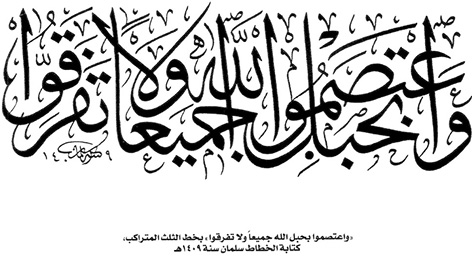 واعتصموا بحبل الله جميعا ولا تفرقوا
«واعتصموا بحبل الله جميعاً ولا تفرقوا» بخط الثلث المتراكب،
كتابة الخطاط سلمان سنة ١٤٠٩هـ